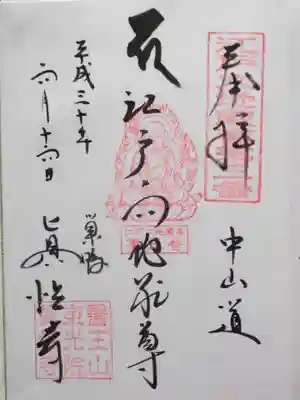 奉拝
中山道
江戸六地蔵尊
平成三十年
六月十六日
巣鴨
眞性寺
醫王山
東光院